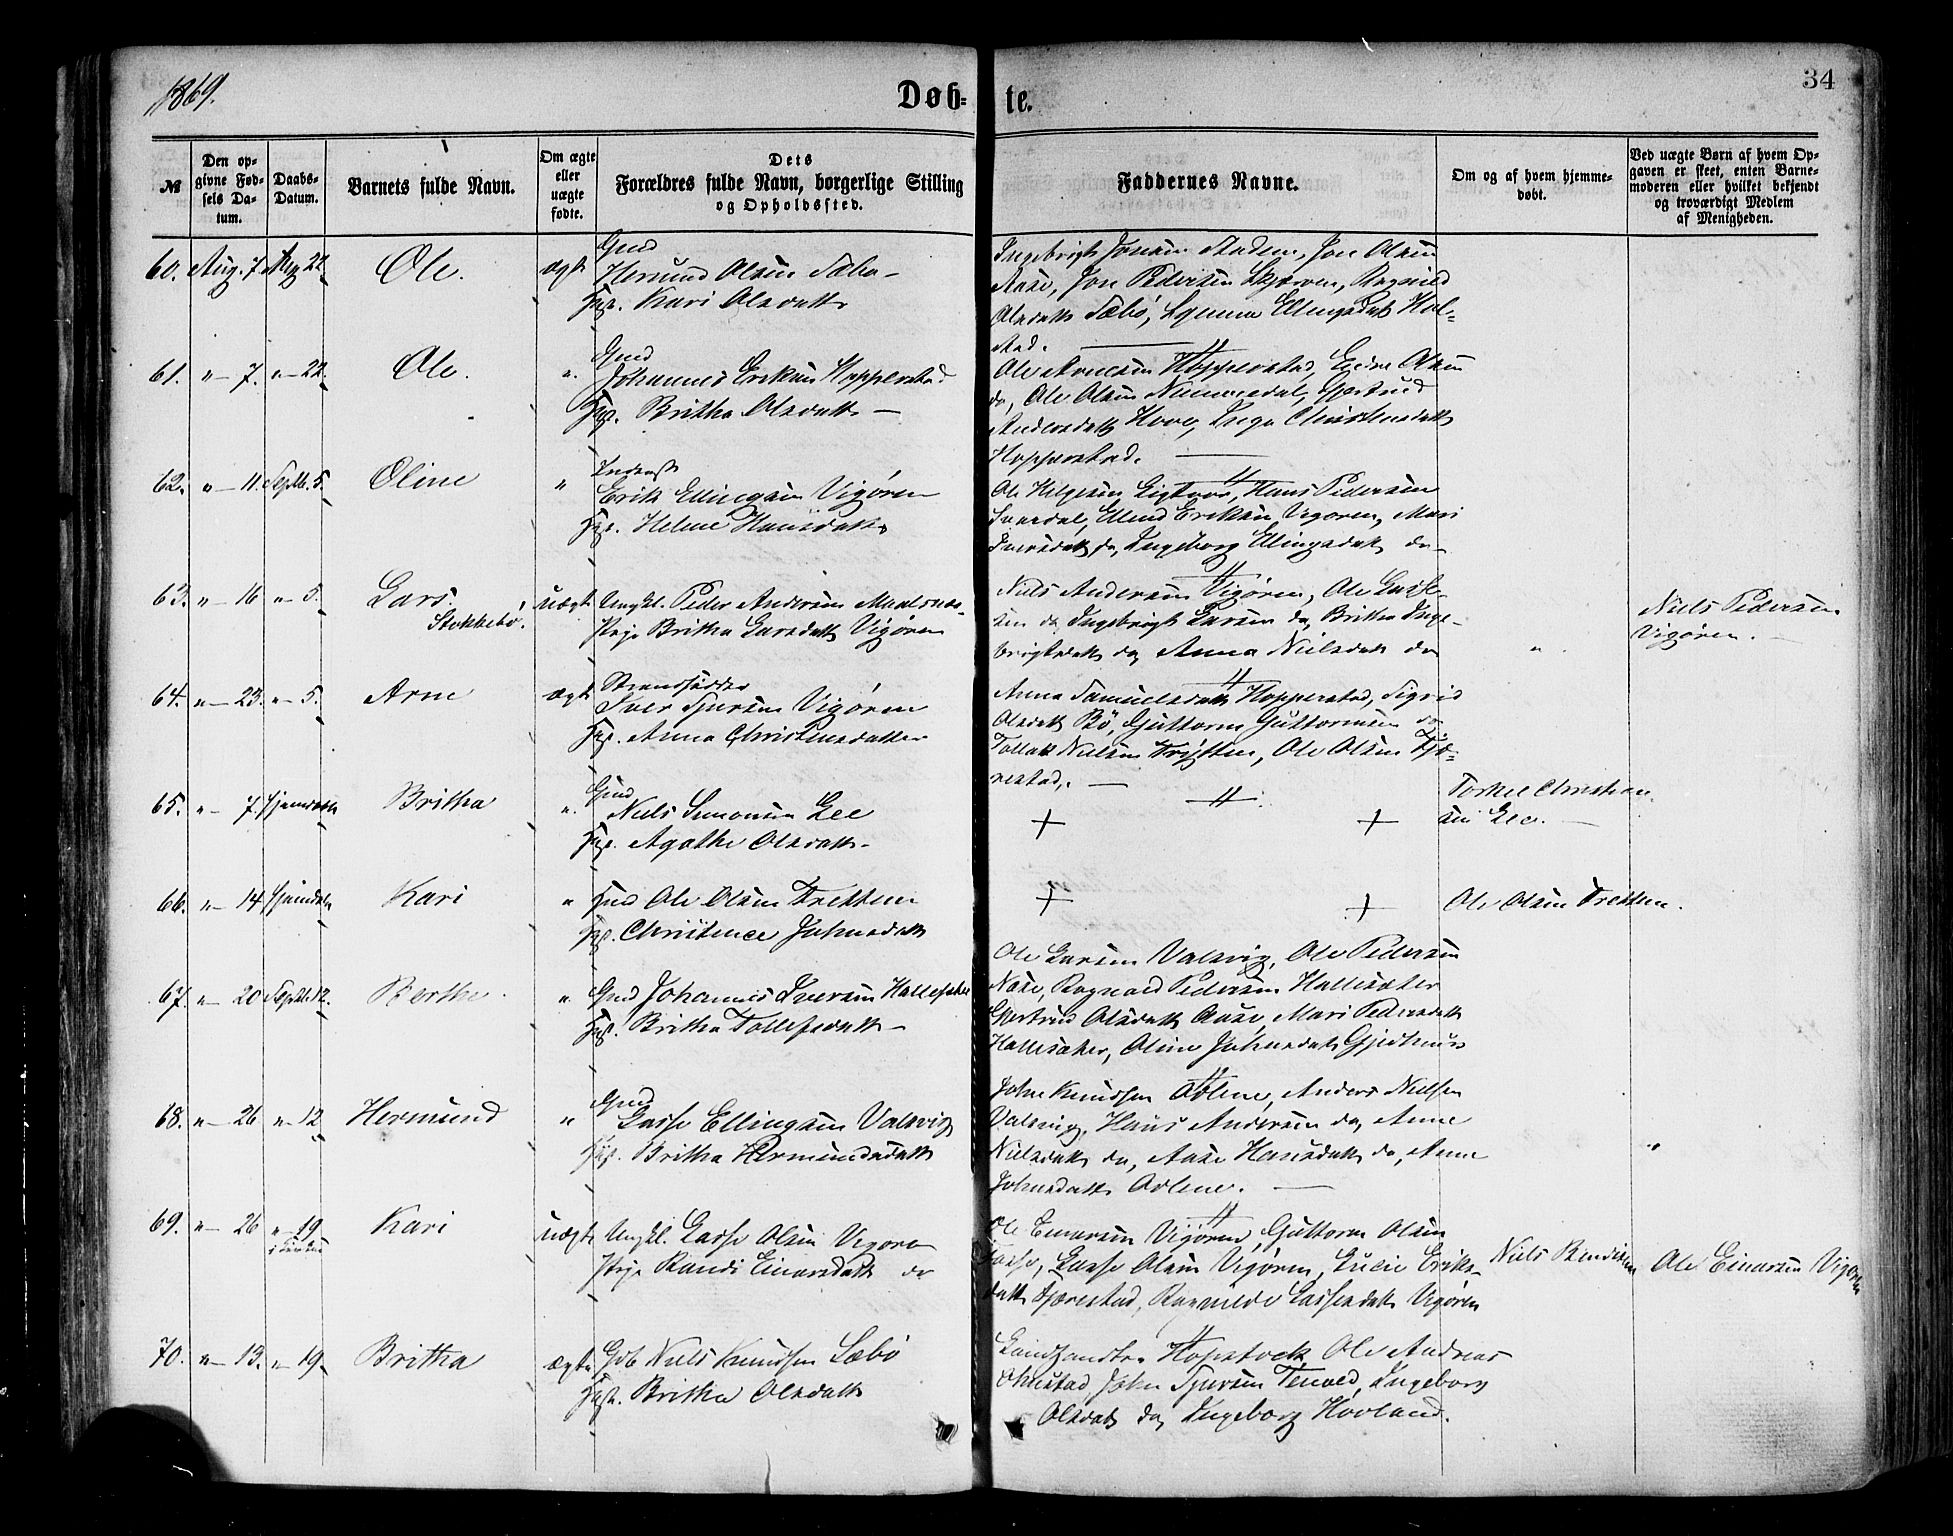 1869.
Døb-
te.
34
№
Den op-
givne Fød-
sels Da-
tum.
Daabs-
Datum.
Barnets fulde Navn.
Om ægte
eller
uægte
fødte.
Dets
Forældres fulde Navn, borgerlige Stilling
og Opholdssted.
Faddernes Navne.
Om og af hvem hjemme-
døbt.
Ved uægte Børn af hvem Op-
gaven er skeet, enten Barne-
moderen eller hvilket bekjendt
og troværdigt Medlem
af Menigheden.
60. Aug. 7. Aug 22. Ole. ægte
Gmd
Hermund Olsen Sæbø
Kari Olsdatt
Ingebrigt Jonsen Jon Olsen
Aase, Jon Pedersen Ragnild
Olsdatt Sæbø, Ellingsdatt Hol-
stad.
61. " 7. " 22. Ole. "
Gmd
Johannes Eriksen Hopperstad
Britha Olsdatt
Ole Hopperstad, Endre Olsen
do, Ole Olsen Nummedal, Gjertrud
Andersdatt Hove, Inga Christensdatt
Hopperstad.
62. " 11. Septb. 5. Oline "
Inderst
Erik Ellingsen Vigøren
Helene Hansdatt
Ole Helgesen Hans Pedersen
Erlend Eriksen Vigøren, Mari
Iversdatt do, Ingeborg Ellingsdatt do
63. " 16 " 5. Lars uægte
Stokkebø.
Ungkl. Peder Andersen
Pige Britha Larsdatt Vigøren
Niels Andersen Vigøren, Ole Lasse-
sen do, Ingebrigt Larsen do, Britha Inge-
brigtsdatt do, Anna Nielsdatt do
"
Niels Pedersen
Vigøren.
64. " 23. " 5. Arne ægte
Strandsidder
Iver Sjursen Vigøren
Anna Christensdatter
Anna Samuelsdatt Hopperstad, Sigrid
Olsdatt Bö, Guttorm Guttormsen do
Tollak Nielsen Tryften, Ole Olsen Fjæ-
restad.
65. " 7. Hjemdøbt Britha "
Gmd
Niels Simonsen Lee
Agathe Olsdatt
Torkel Christian
sen Lee.
66. " 14 Hjemdøbt Kari "
Gmd Ole Olsen Tretten
Christence Johnsdatt
Ole Olsen Tretten.
67. " 20 Septb. 12. Berthe "
Gmd Johannes Iversen Hallesæter
Britha Tollefsdatt
Ole Larsen Valsvig, Ole Pedersen
Aase, Ragnald Pedersen Hallesæter
Gjertrud Olsdatt Aase, Mari Pedersdatt
Hallesæter, Oline Johnsdatt
68. " 26 " 12 Hermund "
Gmd
Lasse Ellingsen Valsvig
Britha Hermundsdatt
John Knudsen Anders Nielsen
Valsvig, Hans Andersen do, Anne
Nielsdatt do, Aase Hansdatt do, Anne
Johnsdatt
"
69. " 26 " 19 Kari uægte
Ungkl. Lasse Olsen Vigøren
Pige Randi Einarsdatt do
Ole Einarsen Vigøren, Guttorm Olsen
Lasse Olsen Vigøren, Lucie Eriks-
datt Fjærestad, Ragnilde Lassesdatt Vigøren
Niels Bendiksen
Ole Einarsen Vigøren
70. " 13. " 19. Britha ægte.
Gdb Niels Knudsen Sæbö
Britha Olsdatt
Landhandler Hopstock, Ole Andreas
Ohnstad, John Sjursen Tenold, Ingeborg
Olsdatt do, Ingeborg Hovland.